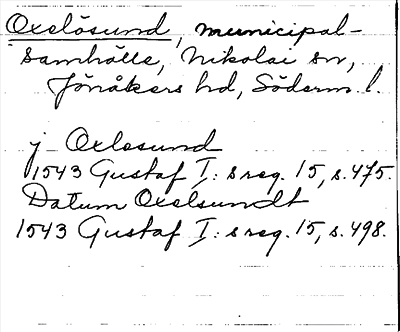 Oxelösund, municipal-
samhälle, Nikolai sn,
Jönåkers hd, Söderm. l.
j Oxlesund
1543 Gustaf I: s reg. 15, s. 475.
Datum Oxelsundt
1543 Gustaf I: s reg. 15, s. 498.